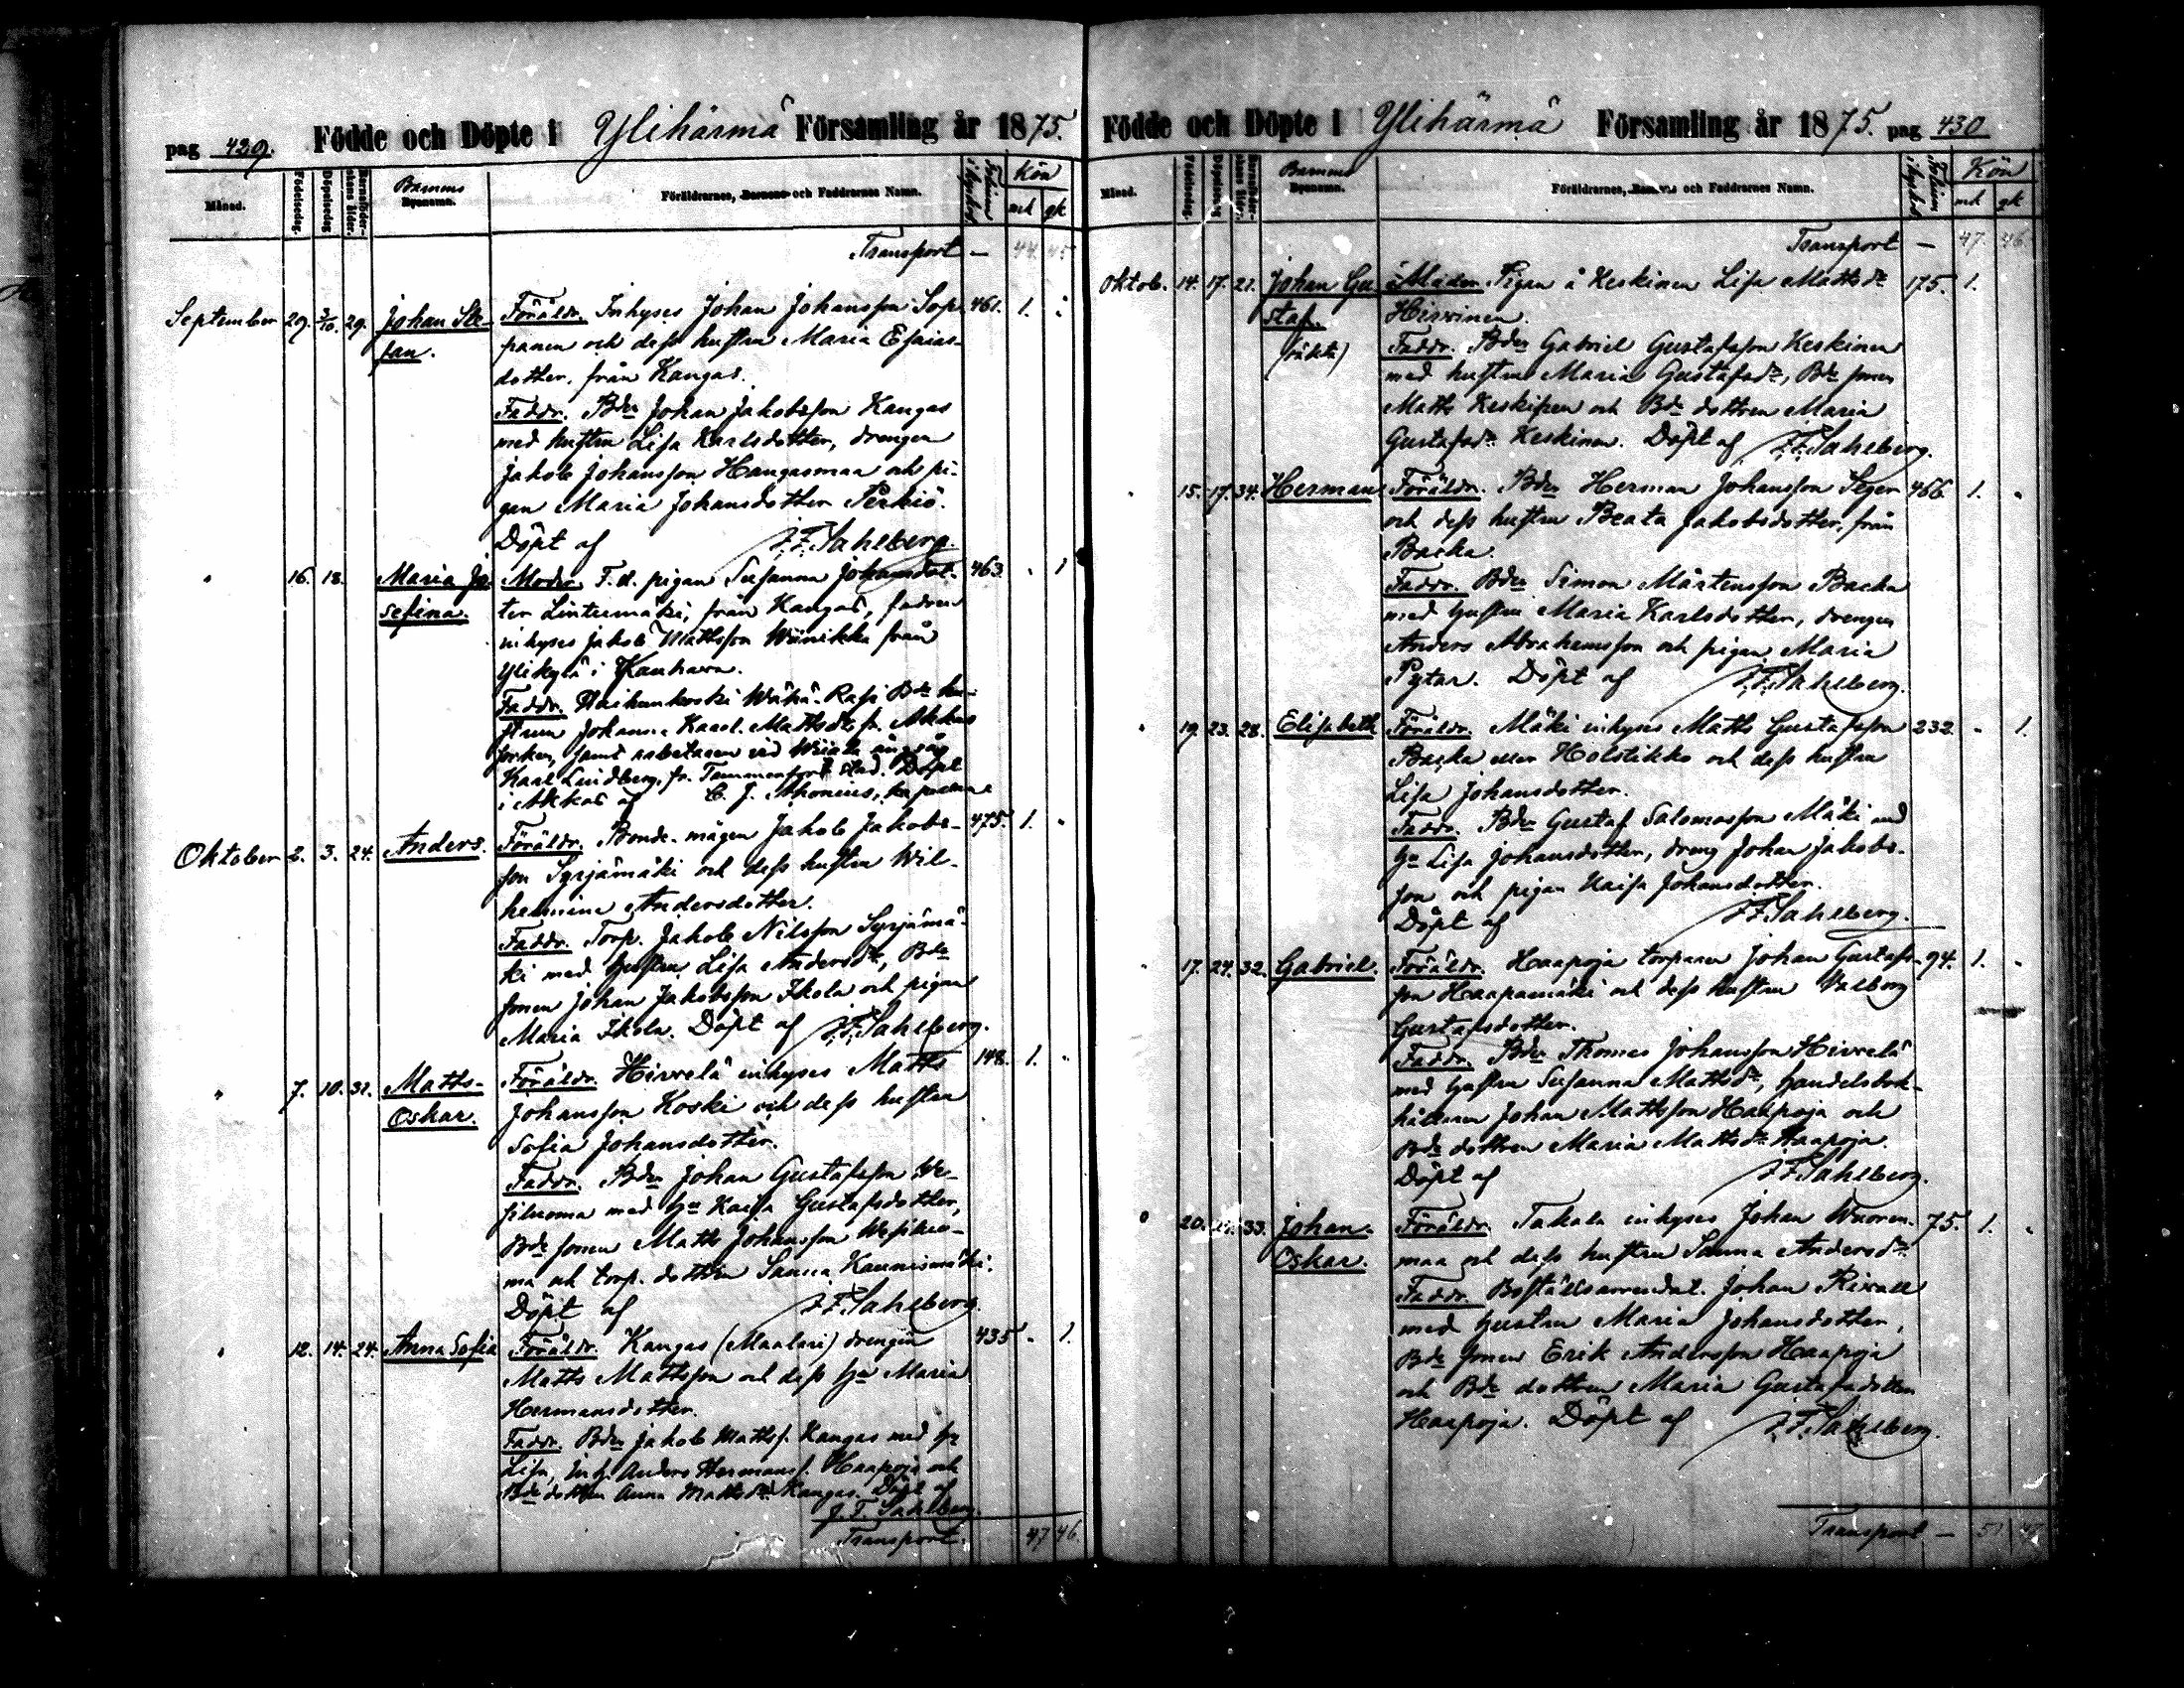 pag 429. Födde och Döpte i Ylihärmä Församling år 1875.
Månad. Födelsedag. Döpelsedag Barnaföderskans ålder. Barnens Dopnamn. Föräldrarnes, Barnens och Faddrarnes Namn. Kön
mk qk
Transport — 44. 45
September 29. 3/10. 29. Johan Ste- Föräldr. Inhyses Johan Johansson Sop- 461. 1.
fan. panen och dess hustru Maria Esaias-
dotter, från Kangas.
Faddr. Bdn Johan Jakobsson Kangas
med hustru Lisa Karlsdotter, drengen
Jakob Johansson Hangasmaa och pi-
gan Maria Johansdotter Perkiö.
Döpt af J.F. Sahlberg.
16. 18. Maria Jo- Modr. F.d. pigan Susanna Johansdot- 463. 1
sefina. ter Lintumäki, från Kangas, fadren
inhyses Jakob Mattsson Wänikka från
Ylikylä i Kauhava.
Faddr. Wähä-Rasi Bde hu-
strun Johanna Karol. Mattsdtr fr. Akkas
socken, samt arbetaren vid Wiiala ångsåg
Karl Lindberg, fr. Tammerfors stad. Döpt
i Akkas af C. J. Ahonius, kaplan
Oktober 2. 3. 24. Anders. Föräldr. Bonde-mågen Jakob Jakobs- 475. 1.
son Syrjämäki och dess hustru Wil-
helmina Andersdotter.
Faddr. Torp. Jakob Nilsson Syrjämä-
ki med hustru Lisa Andersdtr, Bde
sonen Johan Jakobsson Ikola och pigan
Maria Ikola. Döpt af J.F. Sahlberg.
7. 10. 32. Matts- Föräldr. Hirvelä inhyses Matts 148. 1.
Oskar. Johansson Koski och dess hustru
Sofia Johansdotter.
Faddr. Bdn Johan Gustafsson We-
siluoma med hu Kaisa Gustafsdotter,
Bde sonen Matts Johansson Wesiluo-
ma och torp. dottren Sanna Kaunismäki.
Döpt af J.F. Sahlberg.
12. 14. 24. Anna Sofia Föräldr. Kangas (Maalari) drengen 435 1.
Matts Mattsson och dess hu Maria
Hermansdotter.
Faddr. Bdn Jakob Mattss. Kangas med hu
Lisa, Inh. Anders Hermanss. Haapoja och
Bde dottren Anna Mattsdtr Kangas. Döpt af
J. F. Sahlberg.
Transport. 47 46.
Födde och Döpte i Ylihärmä Församling år 1875. pag 430
Månad. Födelsedag. Döpelsedag Barnaföderskans ålder. Barnens Dopnamn. Föräldrarnes, Barnens och Faddrarnes Namn. Kön
mk qk
Transport — 47. 46.
Oktob. 14. 17. 21. Johan Gu- Modren Pigan å Keskinen Lisa Mattsdtr 175. 1.
staf. Hirvinen.
(oäkta) Faddr. Bdn Gabriel Gustafsson Keskinen
med hustru Maria Gustafsdtr, Bde sonen
Matts Keskinen och Bde dottren Maria
Gustafsdtr Keskinen. Döpt af J.F. Sahlberg.
15. 17. 34. Herman Föräldr. Bdn Herman Johansson Seger 466 1.
och dess hustru Beata Jakobsdotter, från
Backa.
Faddr. Bdn Simon Mårtensson Backa
med hustru Maria Karlsdotter, drengen
Anders Abrahamsson och pigan Maria
Pytar. Döpt af J.F. Sahlberg.
19. 23. 28. Elisabeth Föräldr. Mäki inhyses Matts Gustafsson 232. 1.
Backa eller Holstikko och dess hustru
Lisa Johansdotter.
Faddr. Bdn Gustaf Salomosson Mäki med
hu Lisa Johansdotter, dreng Johan Jakobs-
son och pigan Kaisa Johansdotter.
Döpt af J.F. Sahlberg.
17. 24. 32. Gabriel. Föräldr. Haapoja torparen Johan Gustafs- 94. 1.
son Haapamäki och dess hustru Walborg
Gustafsdotter.
Faddr. Bdn Thomas Johansson Hirvelä
med hustru Susanna Mattsdtr, handelsbok-
hållaren Johan Mattsson Haapoja och
Bde dottren Maria Mattsdtr Haapoja.
Döpt af J.F. Sahlberg.
20. 33. Johan- Föräldr. Takala inhyses Johan Wuoren- 75. 1.
Oskar. maa och dess hustru Sanna Andersdtr.
Faddr. Boställsarrendat. Johan Rivall
med hustru Maria Johansdotter,
Bde sonen Erik Andersson Haapoja
och Bde dottren Maria Gustafsdotter
Haapoja. Döpt af J.F. Sahlberg.
Transport — 51 47